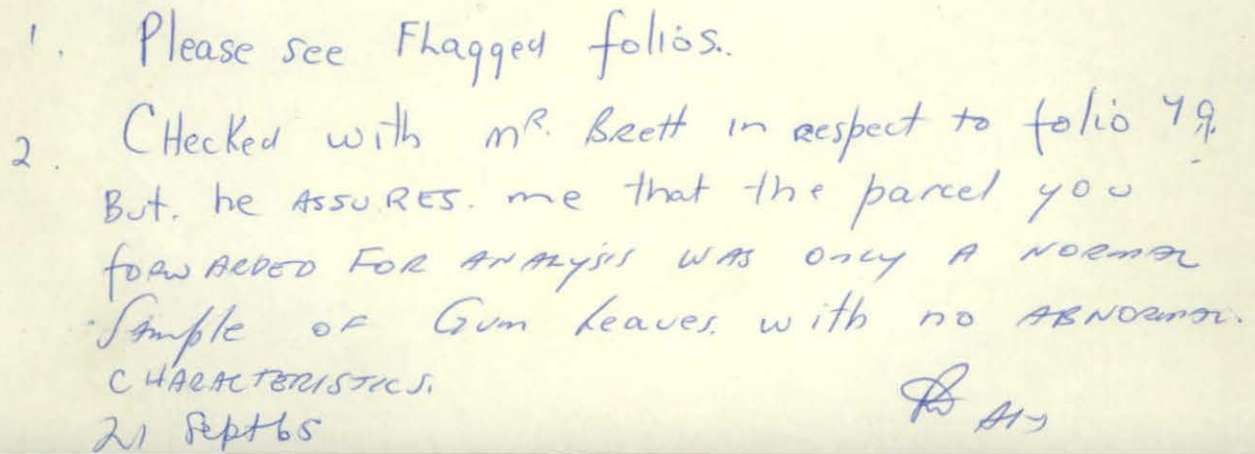 1. Please see Flagged folios.
2. CHecked with mR. Brett in respect to folio 49.
But. he ASSURES. me that the parcel you
forwARDED FOR ANALYSIS WAS ONLY A NORMAL
Sample OF Gum Leaves. with no ABNORMAL.
CHARACTERISTICS.
21 Sept 65